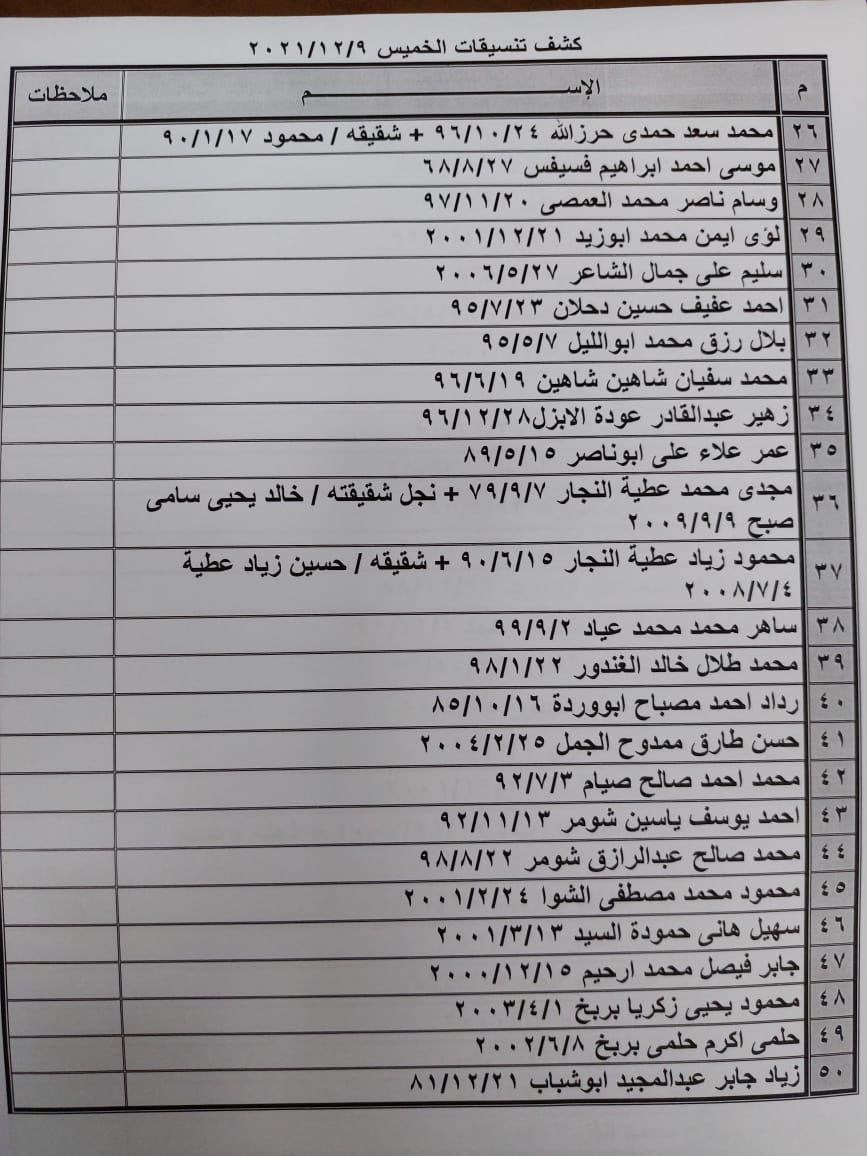 كشف تنسيقات الخميس ٢٠٢١/١٢/٩
م الإســـــــــــــــــــــــم ملاحظات
٢٦ محمد سعد حمدى حرزالله ٩٦/١٠/٢٤ + شقيقه / محمود ٩٠/١/١٧
٢٧ موسى احمد ابراهيم فسيفس ٦٨/٨/٢٧
٢٨ وسام ناصر محمد العمصى ٩٧/١١/٢٠
٢٩ لؤى ايمن محمد ابوزيد ٢٠٠١/١٢/٢١
٣٠ سليم على جمال الشاعر ٢٠٠٦/٥/٢٧
٣١ احمد عفيف حسين دحلان ٩٥/٧/٢٣
٣٢ بلال رزق محمد ابوالليل ٩٥/٥/٧
٣٣ محمد سفيان شاهين شاهين ٩٦/٦/١٩
٣٤ زهير عبدالقادر عودة الابزل٩٦/١٢/٢٨
٣٥ عمر علاء على ابوناصر ٨٩/٥/١٥
٣٦ مجدى محمد عطية النجار ٧٩/٩/٧ + نجل شقيقته / خالد يحيى سامى
صبح ٢٠٠٩/٩/٩
٣٧ محمود زياد عطية النجار ٩٠/٦/١٥ + شقيقه / حسين زياد عطية
٢٠٠٨/٧/٤
٣٨ ساهر محمد محمد عياد ٩٩/٩/٢
٣٩ محمد طلال خالد الغندور ٩٨/١/٢٢
٤٠ رداد احمد مصباح ابووردة ٨٥/١٠/١٦
٤١ حسن طارق ممدوح الجمل ٢٠٠٤/٢/٢٥
٤٢ محمد احمد صالح صيام ٩٢/٧/٣
٤٣ احمد يوسف ياسين شومر ٩٢/١١/١٣
٤٤ محمد صالح عبدالرازق شومر ٩٨/٨/٢٢
٤٥ محمود محمد مصطفى الشوا ٢٠٠١/٢/٢٤
٤٦ سهيل هانى حمودة السيد ٢٠٠١/٣/١٣
٤٧ جابر فيصل محمد ارحيم ٢٠٠٠/١٢/١٥
٤٨ محمود يحيى زكريا بربخ ٢٠٠٣/٤/١
٤٩ حلمى اكرم حلمى بربخ ٢٠٠٢/٦/٨
٥٠ زياد جابر عبدالمجيد ابوشباب ٨١/١٢/٢١